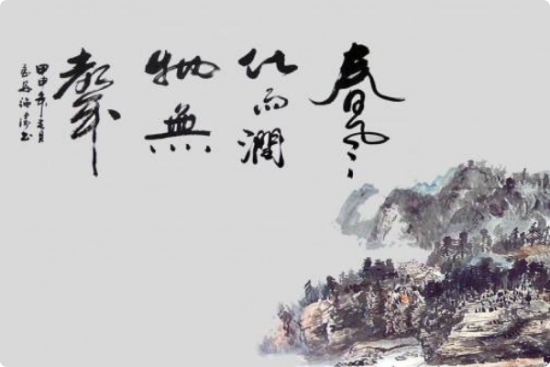 春风
化雨潤
物無
聲
甲申年